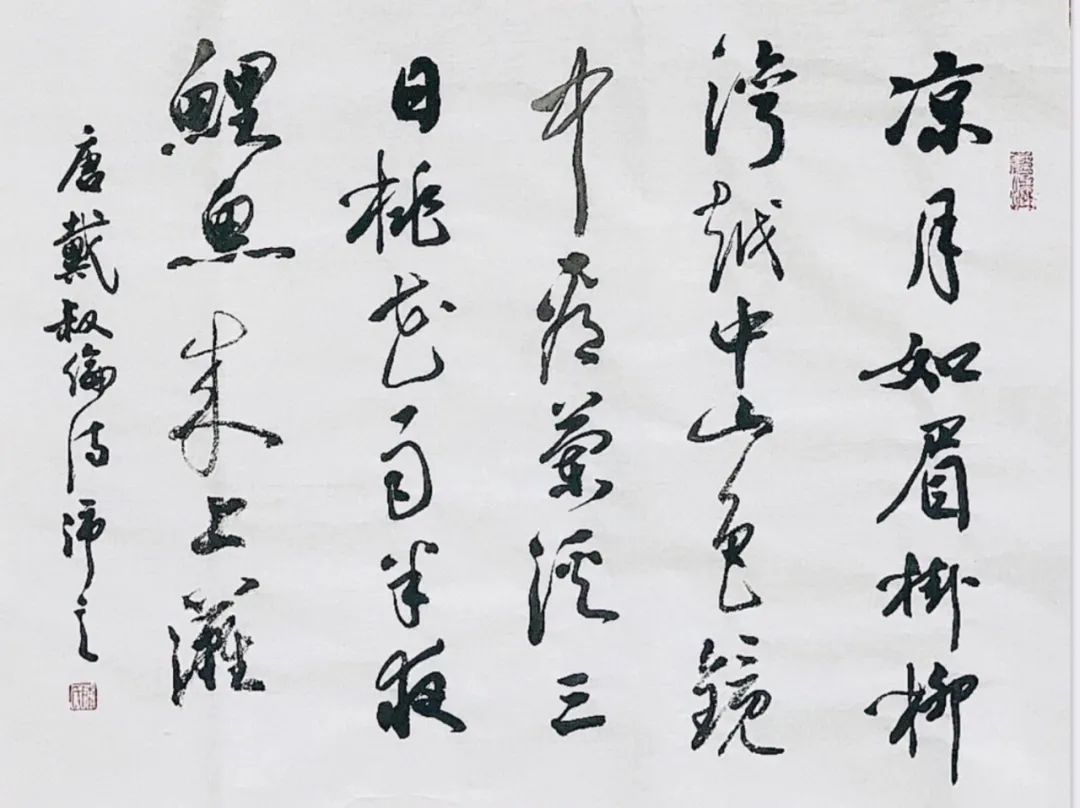 凉月如眉掛柳
湾越中山色鏡
中看蘭溪三
日桃花雨半夜
鯉魚来上灘
唐戴叔倫诗沛之